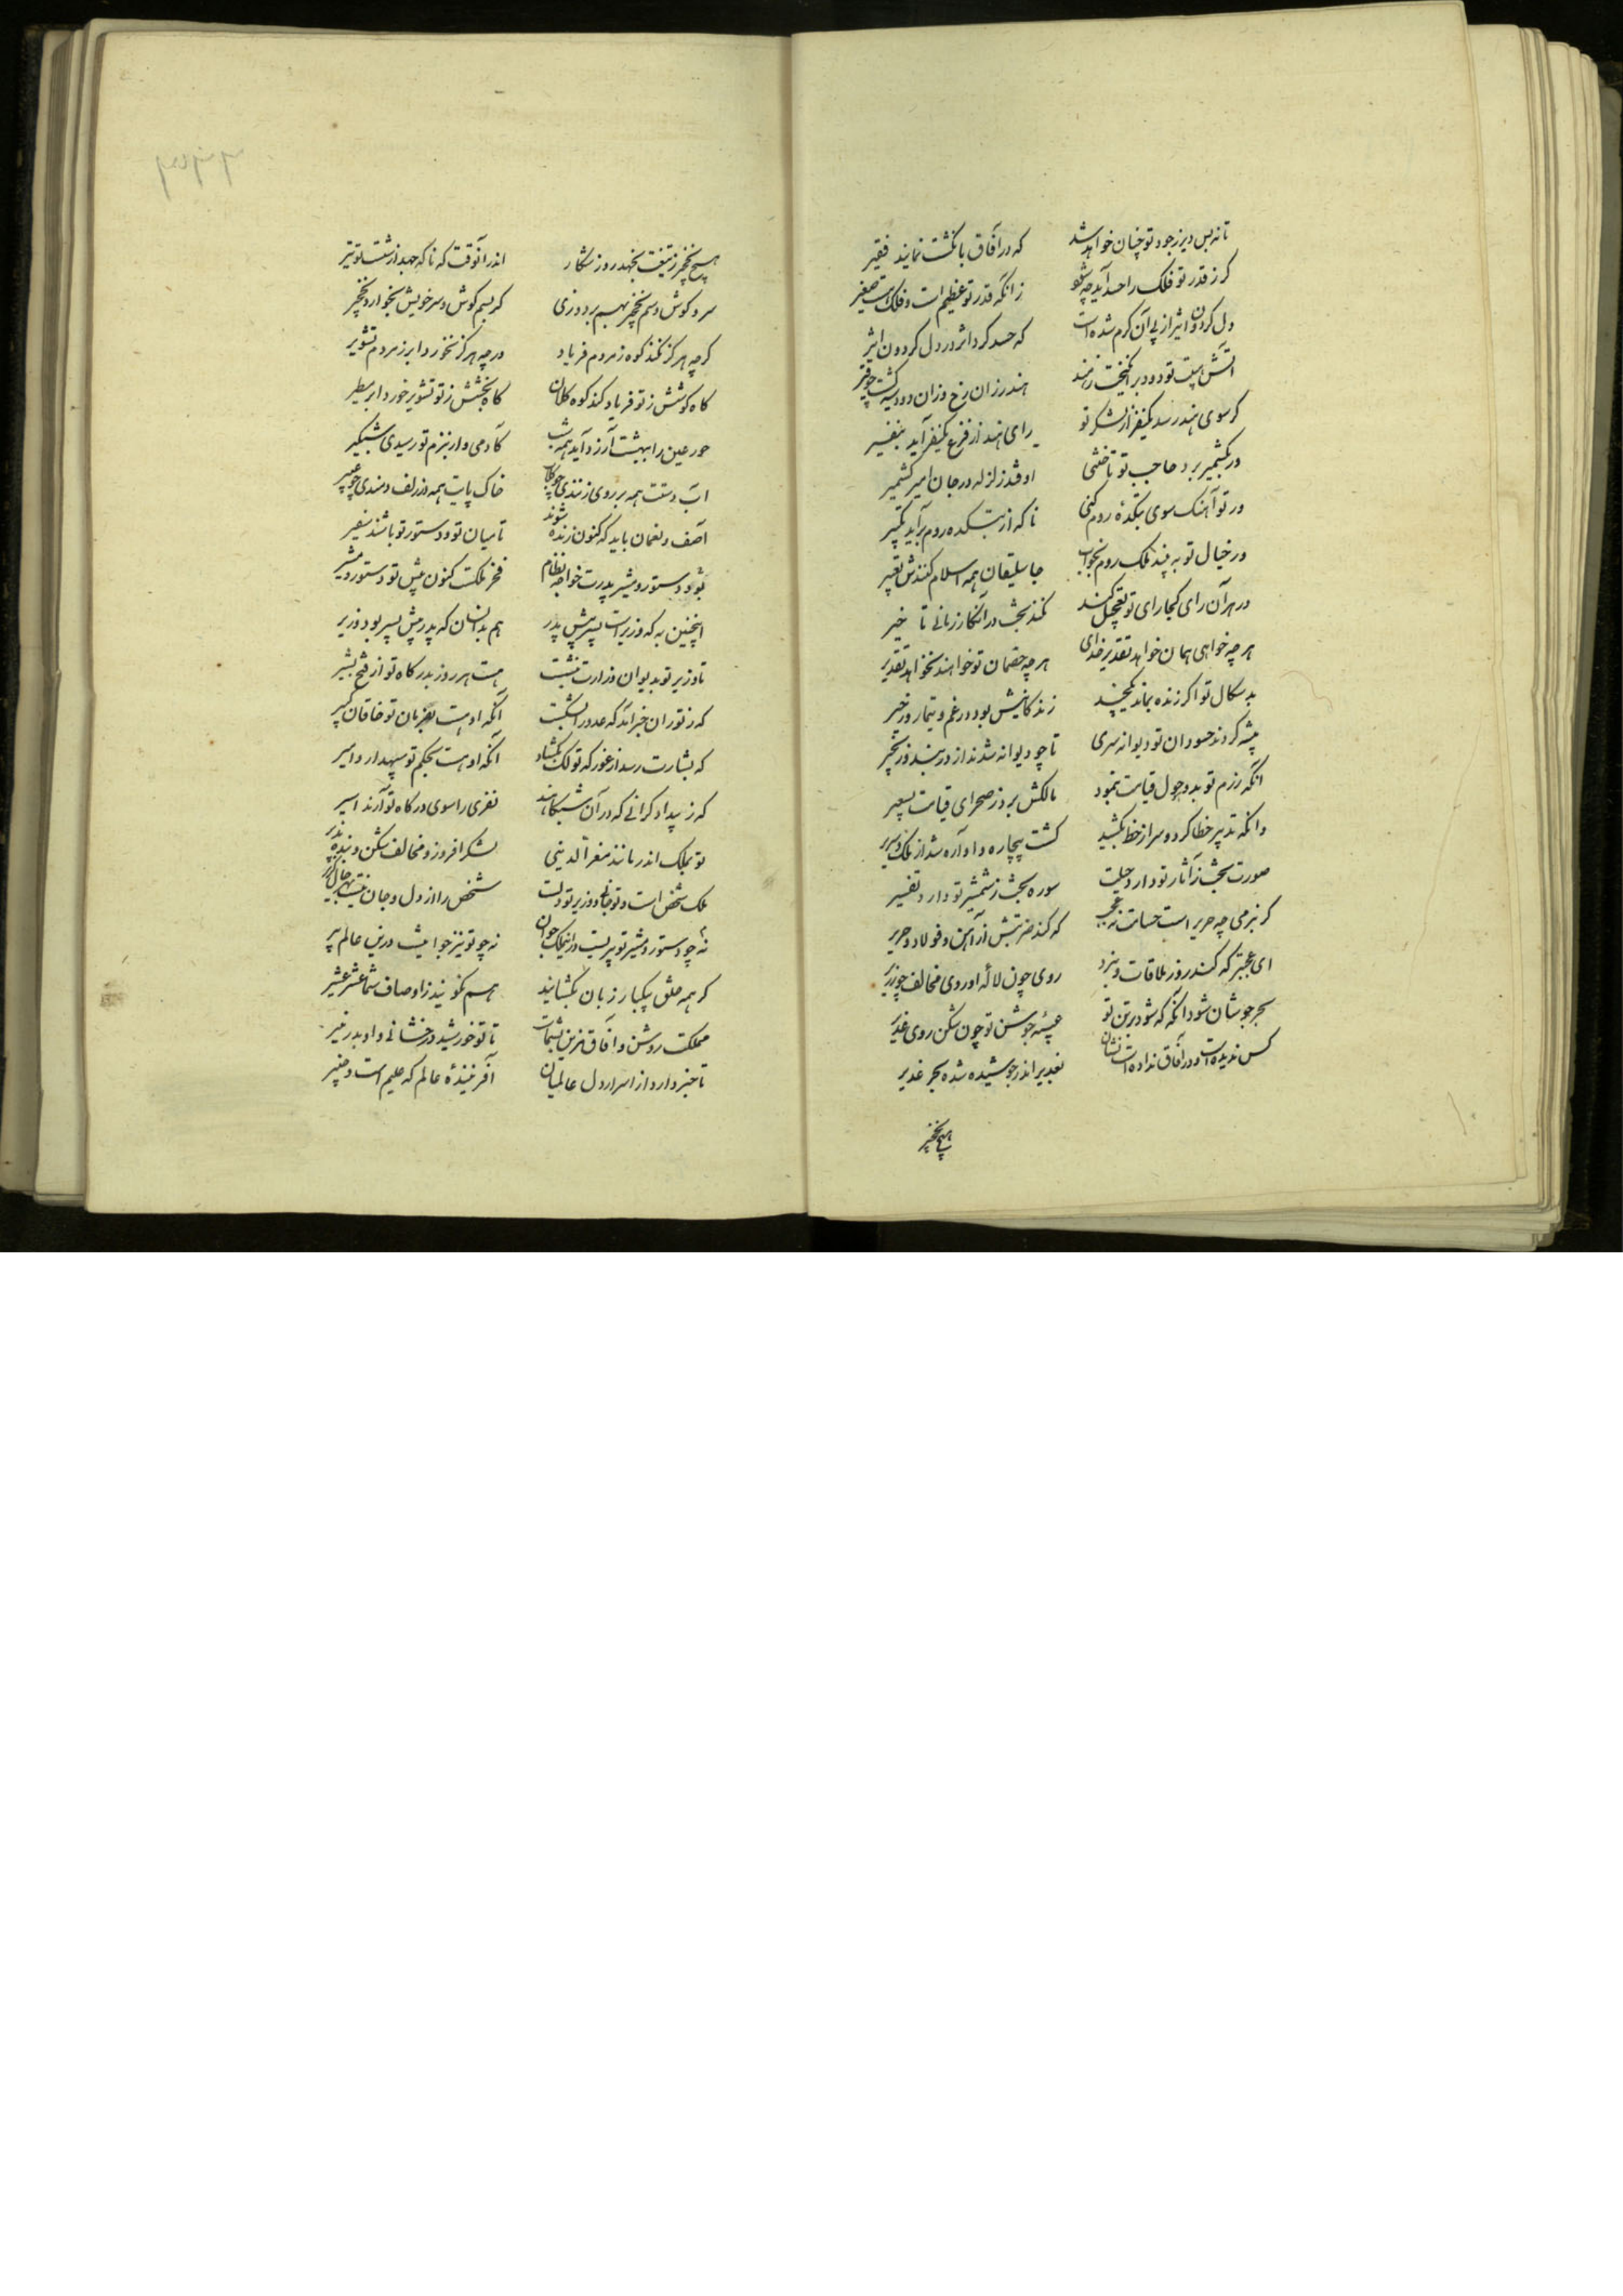 تا نه بس دیر ز جود تو چنان خواهد شد که در آفاق بانگشت نمایند فقیر
گر ز قدر تو فلک را حسد آید چه شود زانکه قدر تو عظیم است و فلک هست صغیر
دل گردون اثیر از پی آن گرم شده است که حسد کرد اثر در دل گردون اثیر
آتش هیبت تو دود برانگیخت ز هند هند را زان رخ و زان دود سیه گشت چو قیر
گر سوی هند رسد یکنفر از لشکر تو رای هند از فزع یکنفر آید بنفیر
ور بکشمیر برد حاجب تو تاختنی اوفتد زلزله در جان امیر کشمیر
ور تو آهنک سوی بتکدهٔ روم کنی ناکه از بتکده روم برآید تکبیر
ور خیال تو به بیند ملک روم بخواب جاسلیقان همه اسلام کنندش تعبیر
در هر آن رای کجا رای تو تعجیل کند نکند بخت در آنکار زمانی تاخیر
هر چه خواهی همان خواهد تقدیر خدای هر چه خصمان تو خواهند نخواهد تقدیر
بد سکال تو اکر زنده بماند یکچند زندکانیش بود در غم و تیمار و زحیر
پیشه کردند حسودان تو دیوانه سری تا چو دیوانه شدند از در بند و زنجیر
آنکه رزم تو بدو هول قیامت بنمود مالکش برد ز صحرای قیامت بسعیر
وانکه تدبیر خطا کرد و سر از خط بکشید کشت بیچاره و آواره شد از ملک و سریر
صورت بخت ز آثار تو دارد حلیت سوره بخت ز شمشیر تو دارد تفسیر
که کند ضربتش از آهن و فولاد و حریر
ای عجب تر که کند روز ملاقات و نبرد روی چون لاله اوروی مخالف چو زریر
بحر جوشان شود آنکه که شود در تن تو عیبه جوشن تو چون شکن روی غدیر
کس ندیده است و در آفاق نداده است نشان بغدیر اندر جوشیده شده بحر غدیر
هیچ نخجیر
هیچ نخجیر ز تیغت نجهد روز شکار اندر آنوقت که ناکه جهد از شست تو تیر
سر و کوش و سم نخجیر بهم بردوزی کر بسم کوش و سر خویش بخوارد نخجیر
کر چه هرکز نکند کوه ز مردم فریاد ور چه هرکز نخورد ابر ز مردم تشویر
کاه کوشش ز تو فریاد کند کوه کلان کاه بخشش ز تو تشویر خورد ابر مطیر
حور عین را ببهشت آرزو آید همه شب کادمی وار ببزم تو رسیدی شبکیر
آب دستت همه بر روی زنندی چو کلاب خاک پایت همه در زلف دمندی چو عبیر
آصف و نعمان باید که کنون زنده شوند تا میان تو و دستور تو باشند سفیر
بود دستور و مشیر پدرت خواجه نظام فخر ملکت کنون پیش تو دستور و مشیر
اینچنین به که وزیر است پسر پیش پدر هم بدانسان که پدر پیش پسر بود وزیر
تا وزیر تو بدیوان وزارت بنشست هست هر روز بدرکاه تو از فتح بشیر
که ز توران خبر آید که عدو را بشکست آنکه او هست بفرمان تو خاقان کبیر
که بشارت رسد از غور که تولک بکشاد آنکه او هست بحکم تو سپهدار و امیر
نفری را سوی درکاه تو آرند اسیر
تو بملک اندر مانند معزالدینی لشکر افروز و مخالف شکن و بنده پذیر
ملک شخص است و تو جانی و وزیر تو دلست شخص را از دل و جان نیست بهر حال کزیر
نه چو دستور و مشیر تو پیریست در این ملک جوان نه چو تو نیز جوانیست درین عالم پیر
کر همه خلق بیکبار زبان بکشایند هم نکویند ز اوصاف شما عشر عشیر
مملکت روشن و آفاق مزین بشماست تا تو خورشید درخشانی و او بدر منیر
تا خبر دارد از اسرار دل عالمیان آفرینندهٔ عالم که علیم است و خبیر